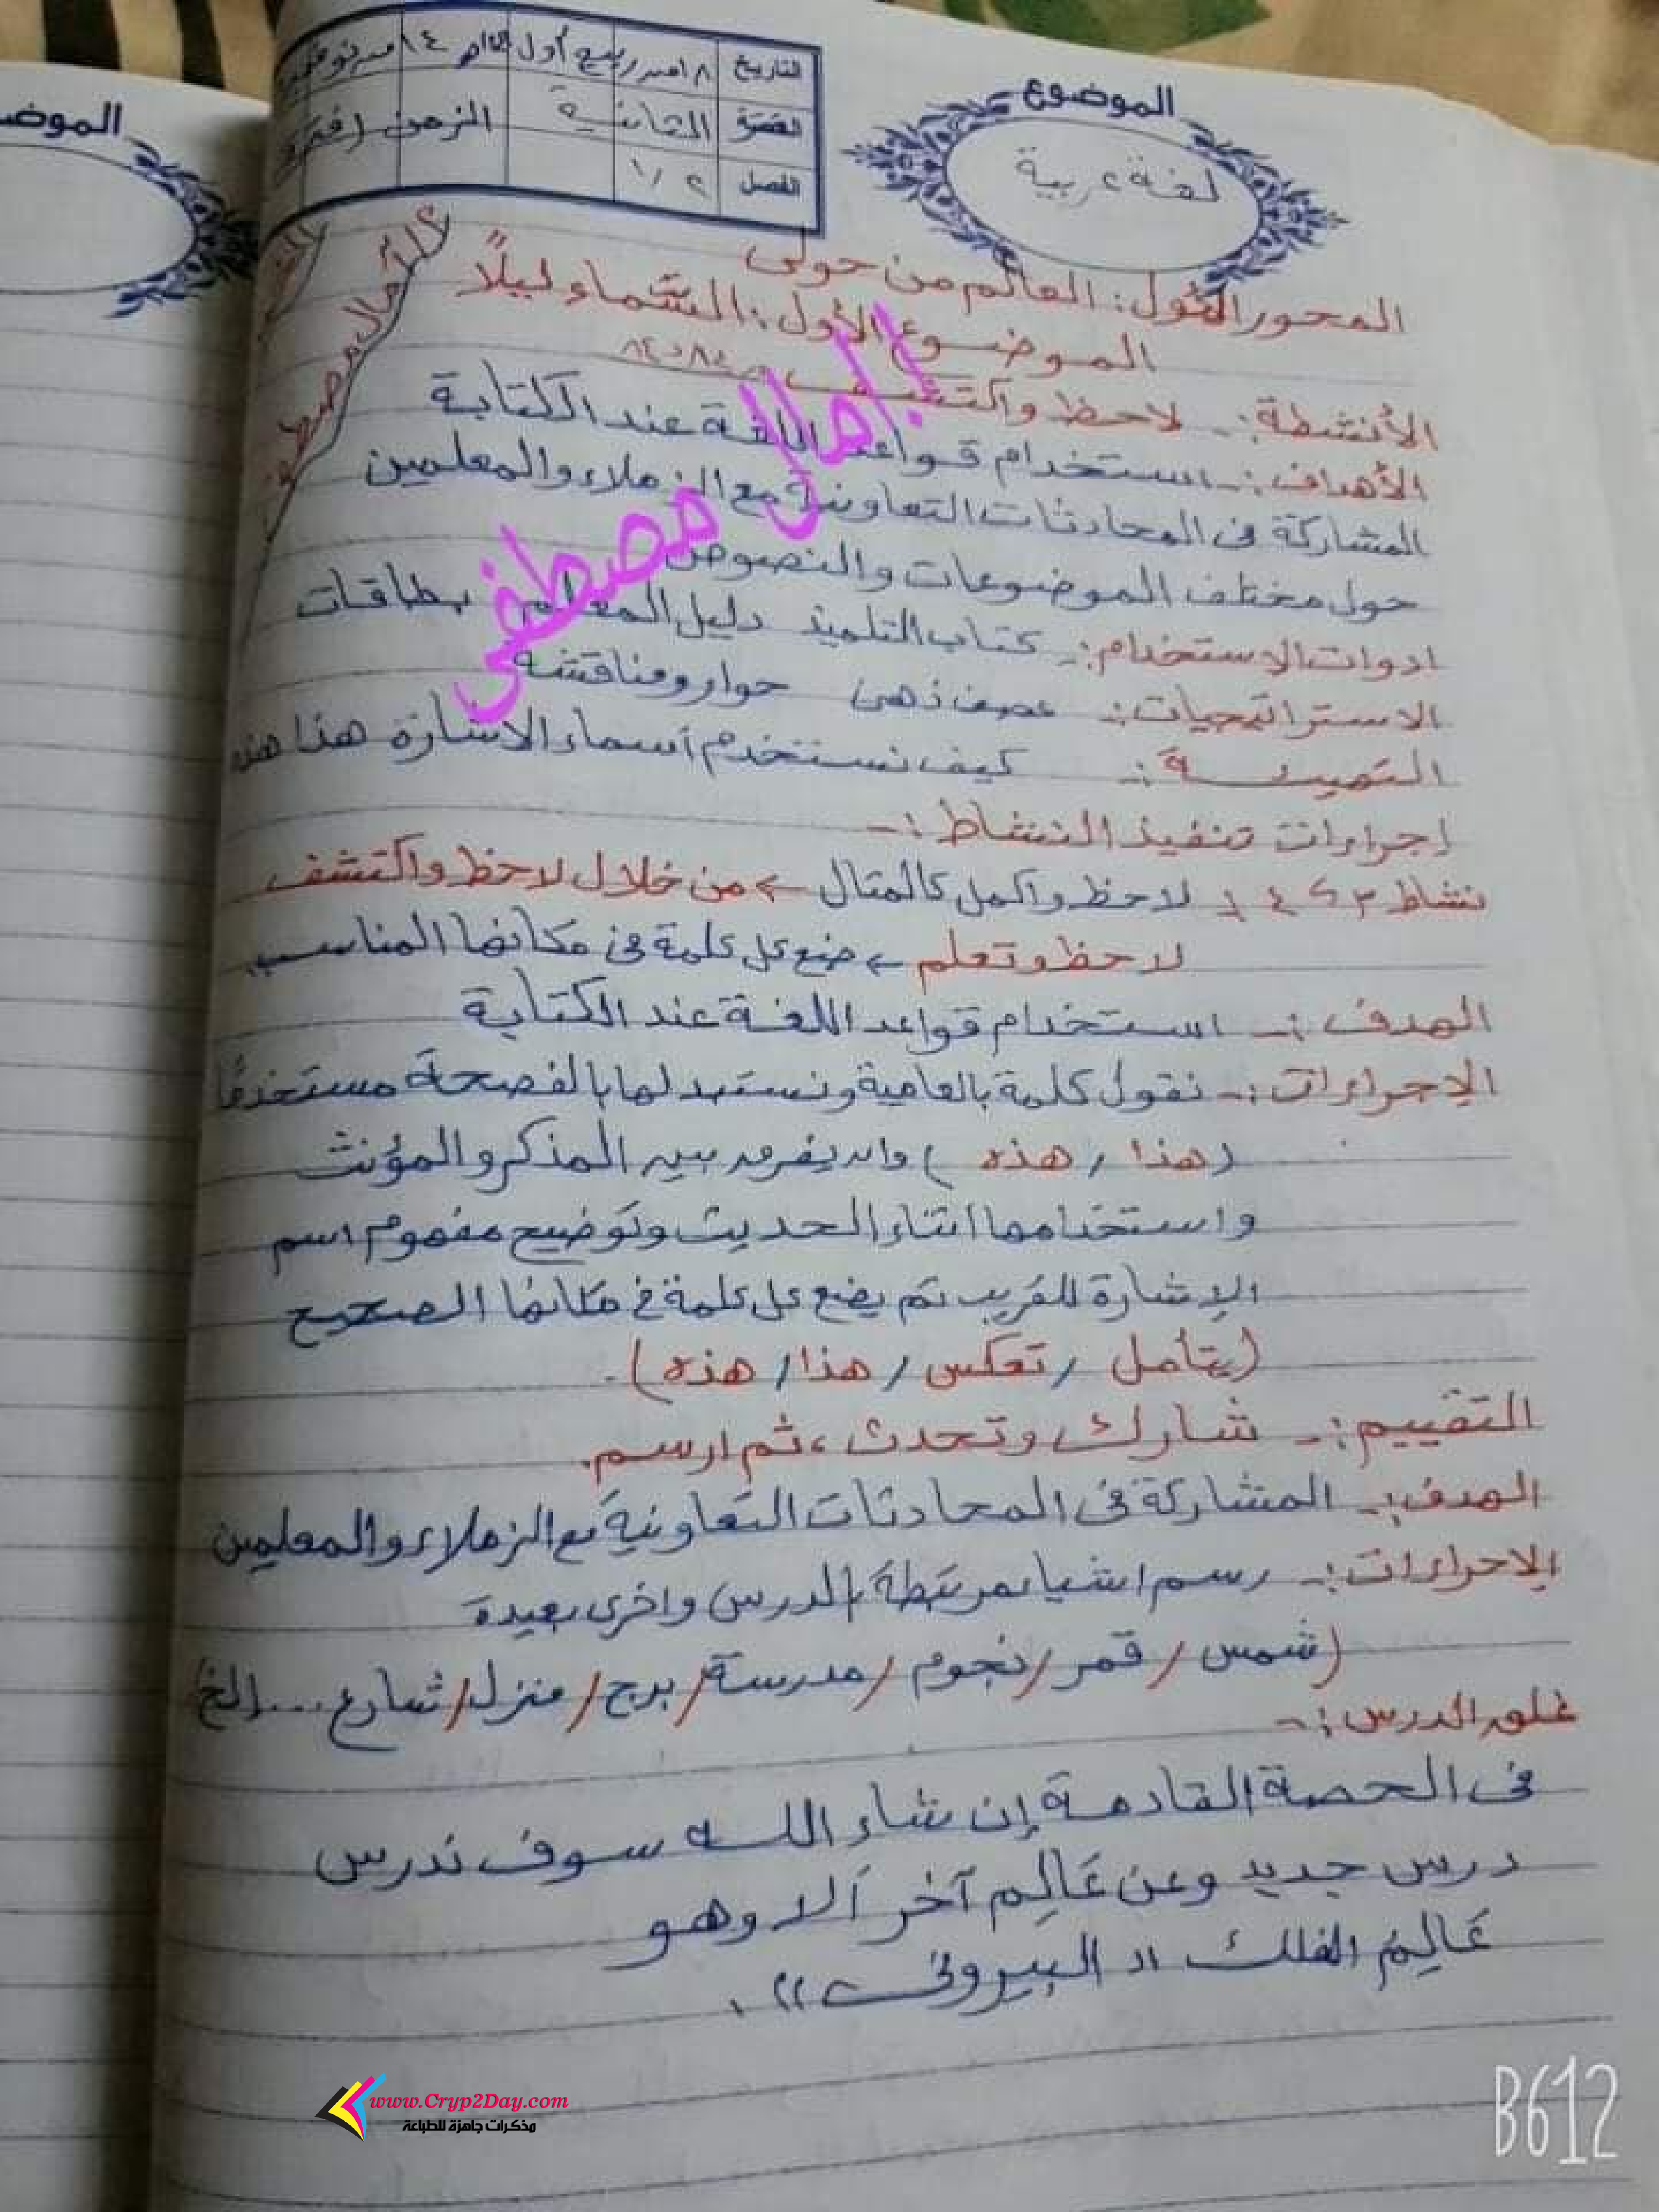 الموضوع
لغة عربية
التاريخ ١٨ من ربيع أول ١٤ من نوفمبر
الفترة الثانية الزمن فترة
الفصل ١/٢
الموضو
المحور الأول: العالم من حولى
الموضوع الأول: السماء ليلاً
أ/أمال مصطفى
الأنشطة:- لاحظ واكتشف
الأهداف:- استخدام قواعد اللغة عند الكتابة
المشاركة فى المحادثات التعاونية مع الزملاء والمعلمين
حول مختلف الموضوعات والنصوص
أمال مصطفى
ادوات الاستخدام:- كتاب التلميذ دليل المعلم بطاقات
الاستراتيجيات:- عصف ذهنى حوار ومناقشة
التهيئة:- كيف نستخدم أسماء الاشارة هذا هذه
إجراءات تنفيذ النشاط:-
نشاط ٣ لاحظ واكمل كالمثال ← من خلال لاحظ واكتشف
لاحظ وتعلم ← ضع كل كلمة فى مكانها المناسب
الهدف:- استخدام قواعد اللغة عند الكتابة
الإجراءات:- نقول كلمة بالعامية ونستبدلها بالفصحة مستخدمًا
(هذا / هذه) وان يفرق بين المذكر والمؤنث
واستخدامها اثناء الحديث وتوضيح مفهوم اسم
الإشارة للقريب ثم يضع كل كلمة فى مكانها الصحيح
(يتأمل / تعكس / هذا / هذه).
التقييم:- شارك وتحدث، ثم ارسم.
الهدف:- المشاركة فى المحادثات التعاونية مع الزملاء والمعلمين
الإجراءات:- رسم اشياء مرتبطة بالدرس واخرى بعيدة
(شمس / قمر / نجوم / مدرسة / برج / منزل / شارع ....الخ)
غلق الدرس:-
فى الحصة القادمة إن شاء الله سوف ندرس
درس جديد وعن عَالِم آخر ألا وهو
عَالِم الفلك "البيرونى".
www.Cryp2Day.com
مذكرات جاهزة للطباعة
B612